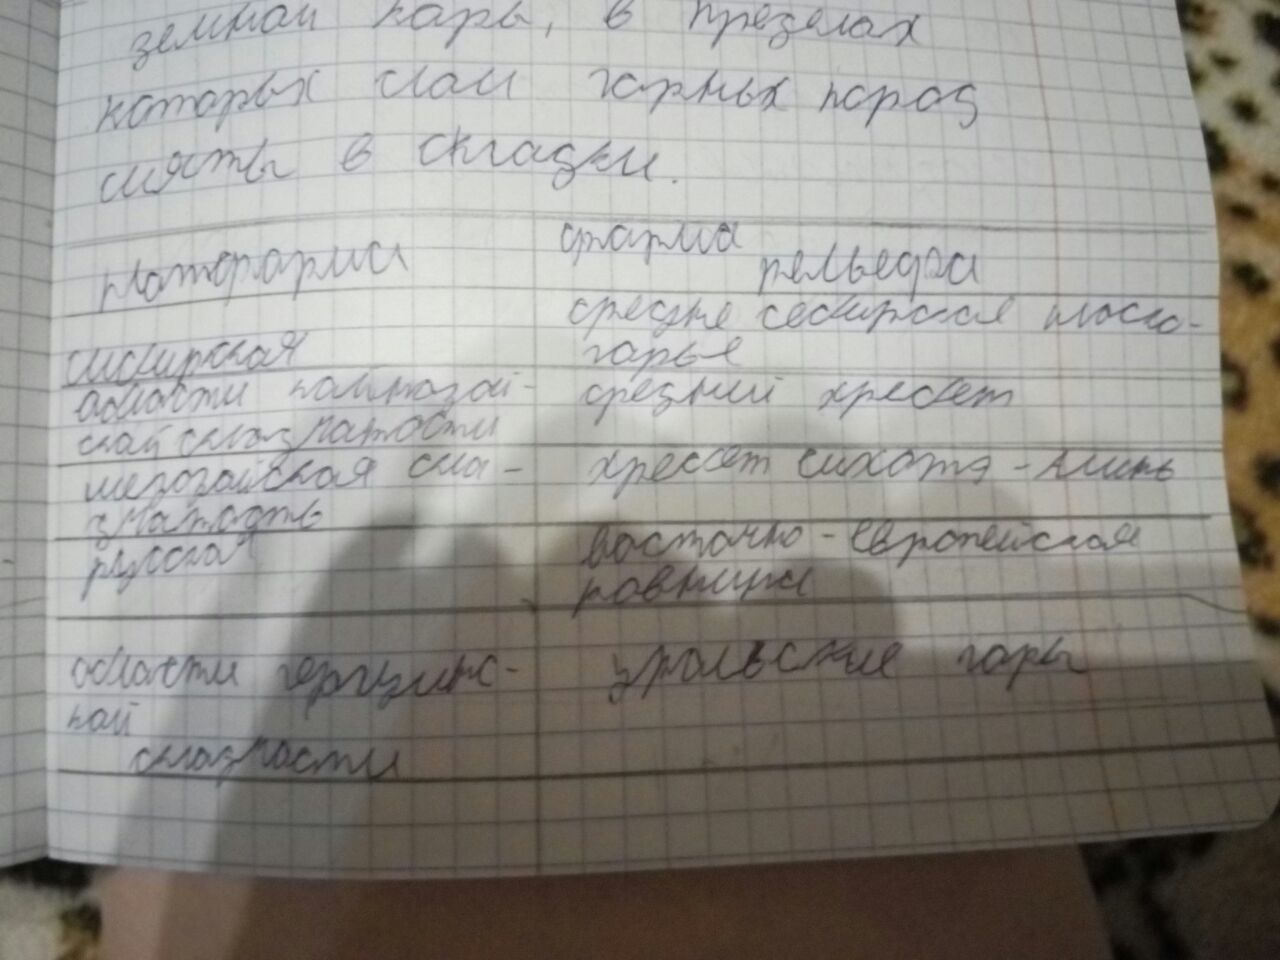 земной коры, в пределах
которых слои горных пород
смяты в складки.
платформа
форма
рельефа
сибирская
средне сибирское плоско-
горье
области кайнозой-
ской складчатости
средний хребет
мезозойская скла-
дчатость
хребет сихотэ-алинь
русская
восточно-европейская
равнина
области герцинс-
кой
складчости
уральские горы